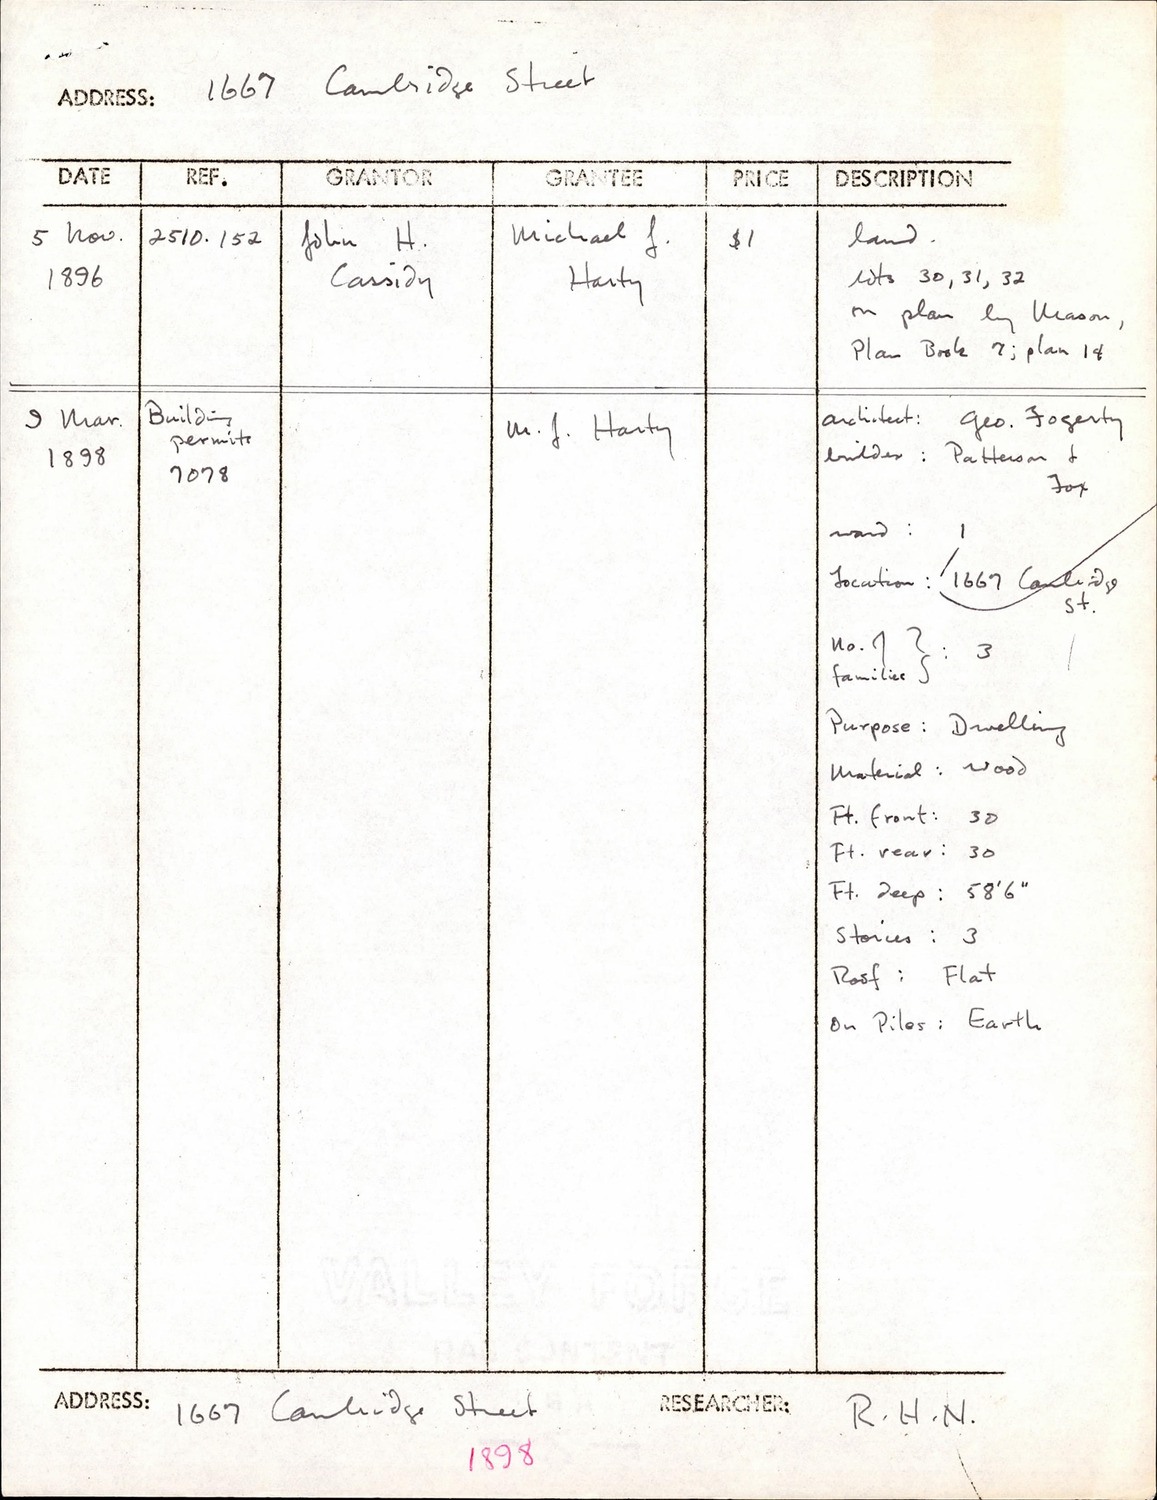 ADDRESS: 1667 Cambridge Street
DATE REF. GRANTOR GRANTEE PRICE DESCRIPTION
5 Nov. 2510.152 John H. Michael J. $1 land.
1896 Cassidy Harty lots 30, 31, 32
on plan by Mason,
Plan Book 7; plan 14
9 Mar. Building M. J. Harty architect: Geo. Fogerty
1898 permits builder: Patterson &
7078 Fox
ward: 1
Location: 1667 Cambridge
St.
No. of } : 3
families }
Purpose: Dwelling
Material: wood
Ft. front: 30
Ft. rear: 30
Ft. deep: 58'6"
Stories: 3
Roof: Flat
On Piles: Earth
ADDRESS: 1667 Cambridge Street RESEARCHER: R.H.N.
1898